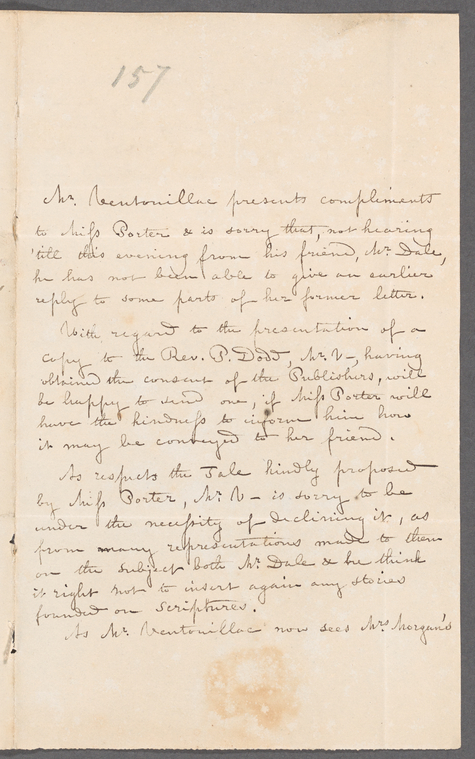 157
Mr. Ventouillac presents compliments
to Miss Porter & is sorry that, not hearing
'till this evening from his friend, Mr. Dale,
he has not been able to give an earlier
reply to some parts of her former letter.
With regard to the presentation of a
copy to the Rev. P. Dodd, Mr. V—, having
obtained the consent of the Publishers, will
be happy to send one, if Miss Porter will
have the kindness to inform him how
it may be conveyed to her friend.
As respects the Tale kindly proposed
by Miss Porter, Mr. V— is sorry to be
under the necessity of declining it, as
from many representations made to them
on the subject both Mr. Dale & he think
it right not to insert again any stories
founded on Scriptures.
As Mr. Ventouillac now sees Mrs Morgan's